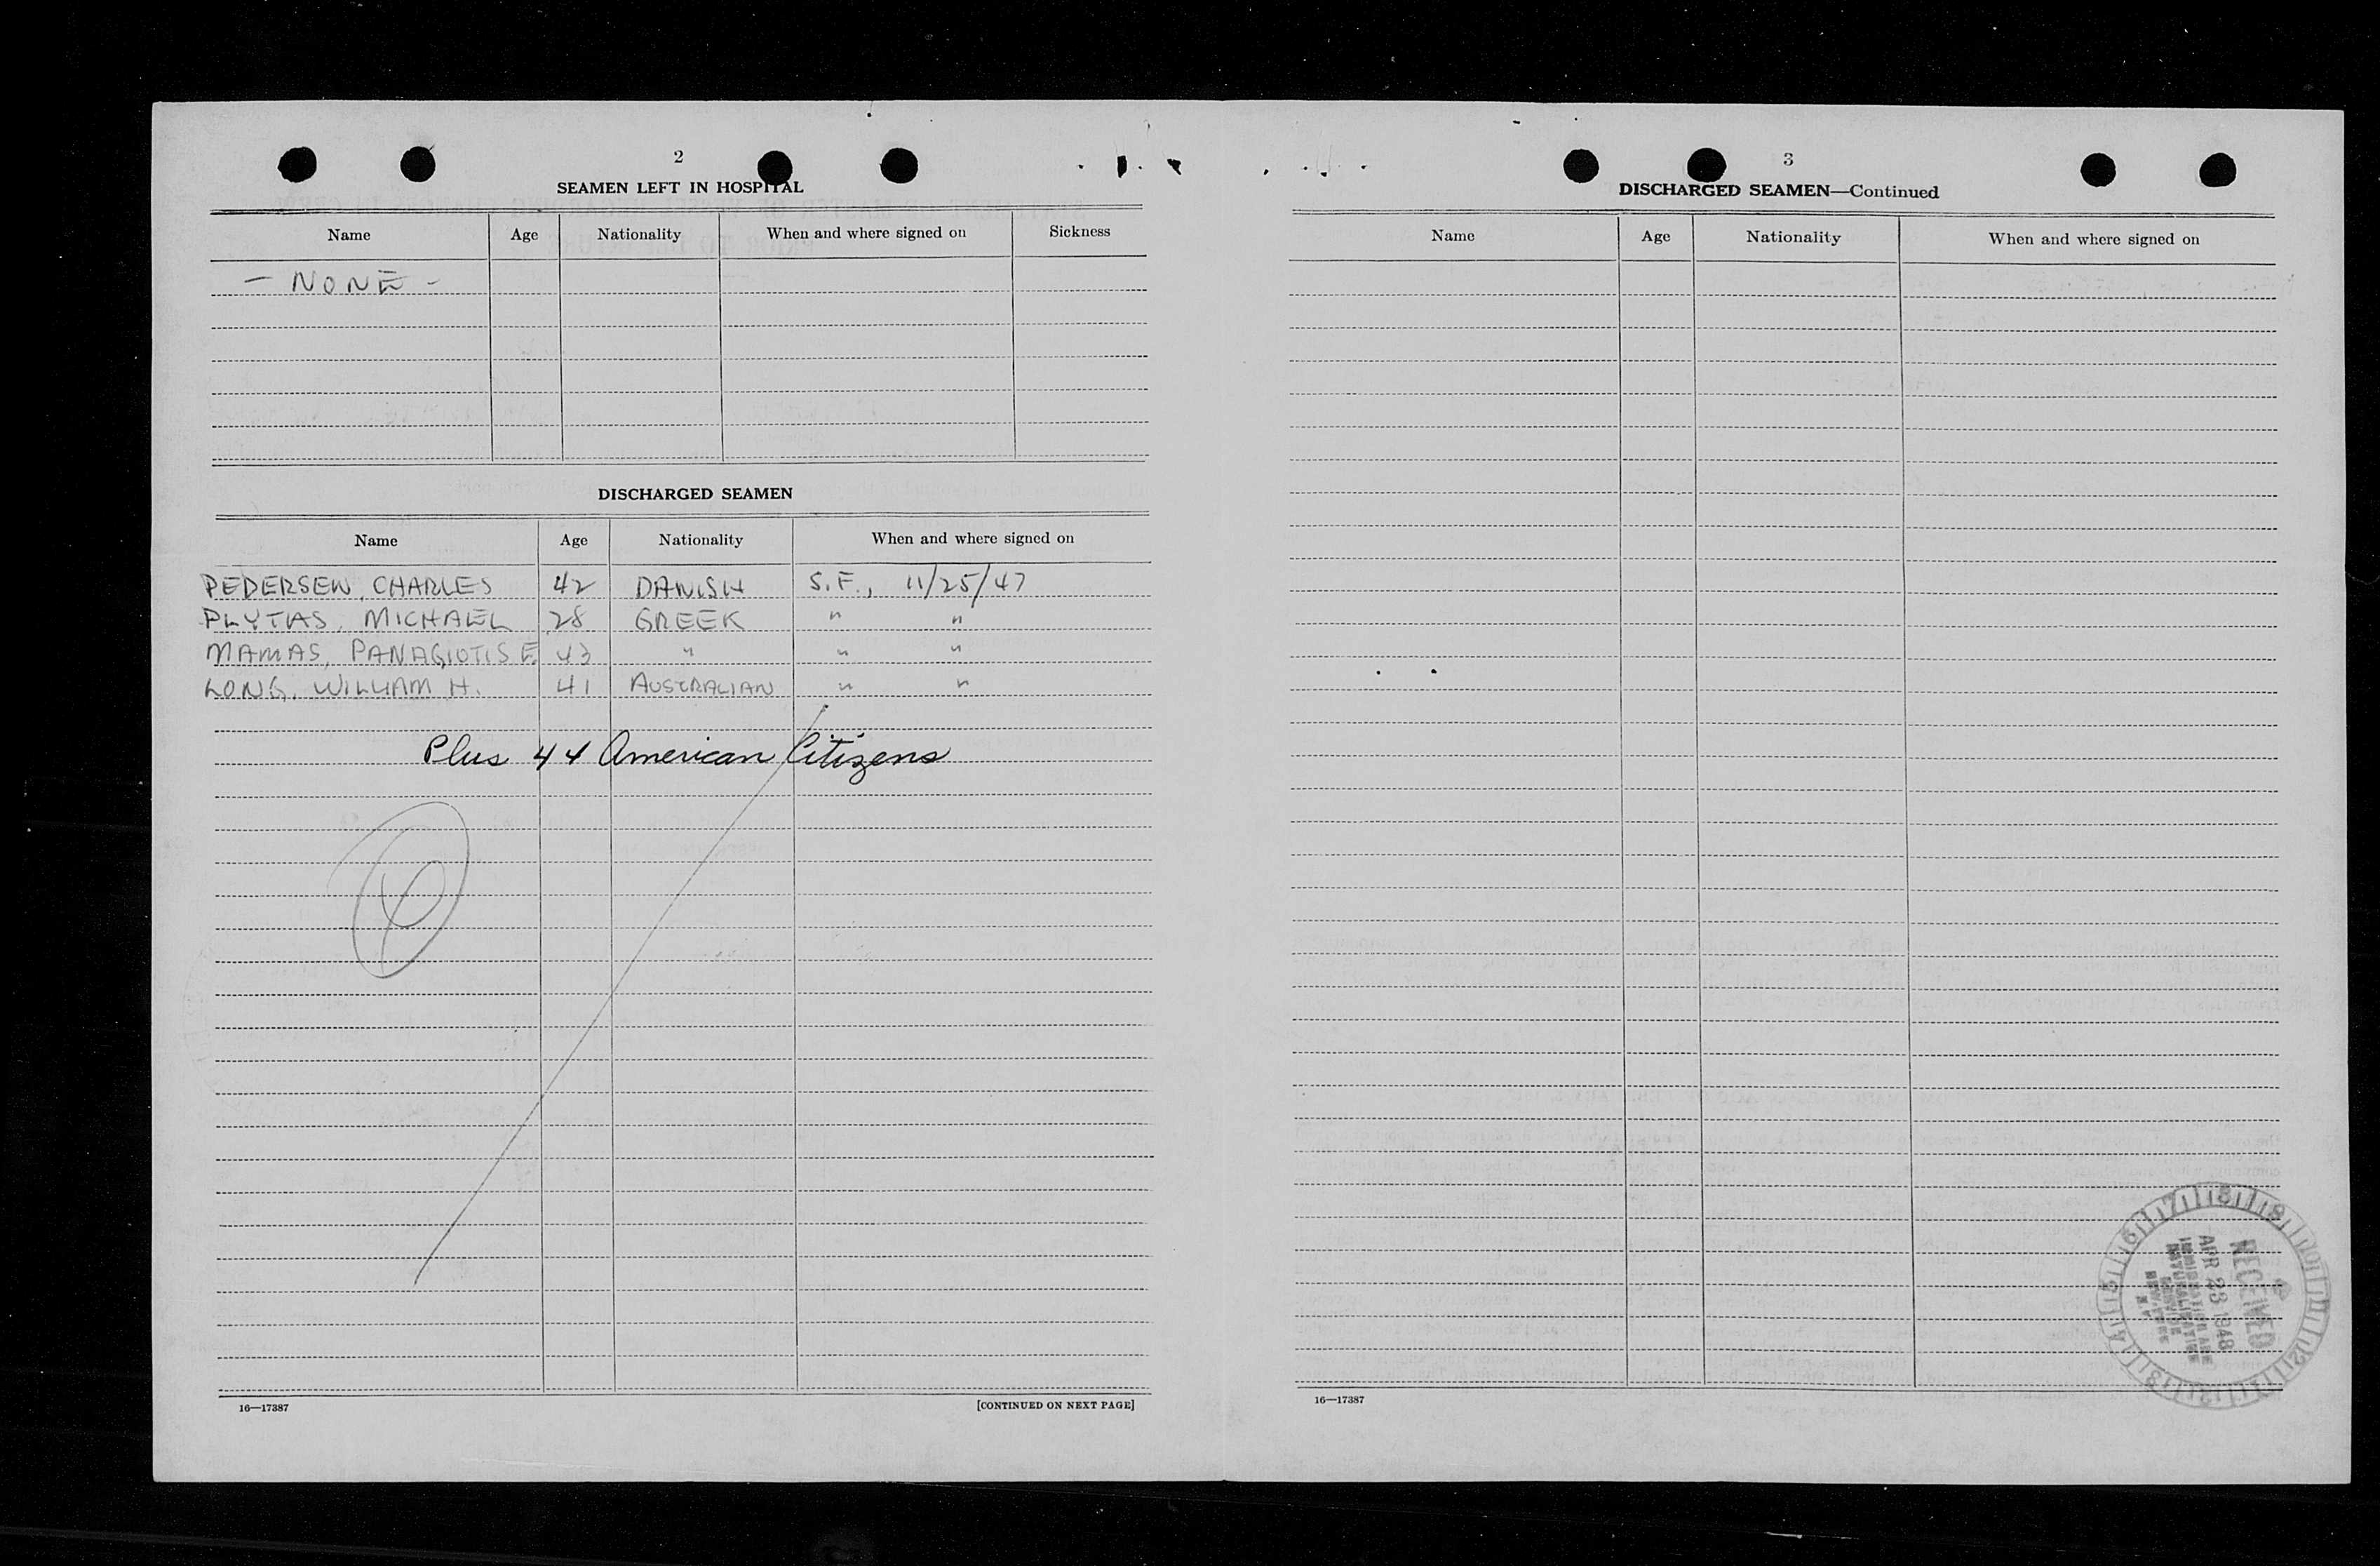 2
SEAMEN LEFT IN HOSPITAL
Name Age Nationality When and where signed on Sickness
- NONE -
DISCHARGED SEAMEN
Name Age Nationality When and where signed on
PEDERSEN, CHARLES 42 DANISH S.F., 11/25/47
PLYTAS, MICHAEL 28 GREEK " "
MAMAS, PANAGIOTIS E. 43 " " "
LONG, WILLIAM H. 41 AUSTRALIAN " "
Plus 44 American Citizens
16—17387 [CONTINUED ON NEXT PAGE]
3
DISCHARGED SEAMEN—Continued
Name Age Nationality When and where signed on
RECEIVED
APR 23 1948
IMMIGRATION AND
NATURALIZATION
SERVICE
NEW YORK
N.Y.
16—17387